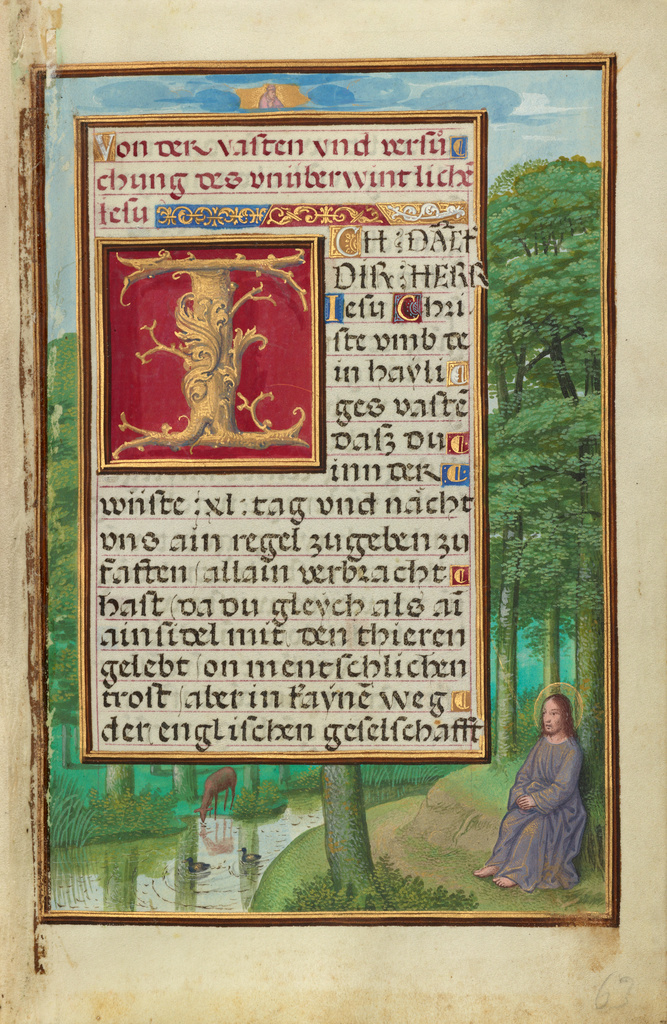 Von der vasten vnd versuͦ
chung des vnüberwintlichē
Iesu
ICH : DÃCK
DIR : HERR
Iesu Chri
ste vmb de
in hayli
ges vastē
dasz du
inn der
wüste : xl : tag vnd nacht
vns ain regel zugeben zu
fasten / allain verbracht
hast / da du gleych als aī
ainsidel mit den thieren
gelebt / on mentschlichen
trost / aber in kaynē weg
der englischen geselschafft
63